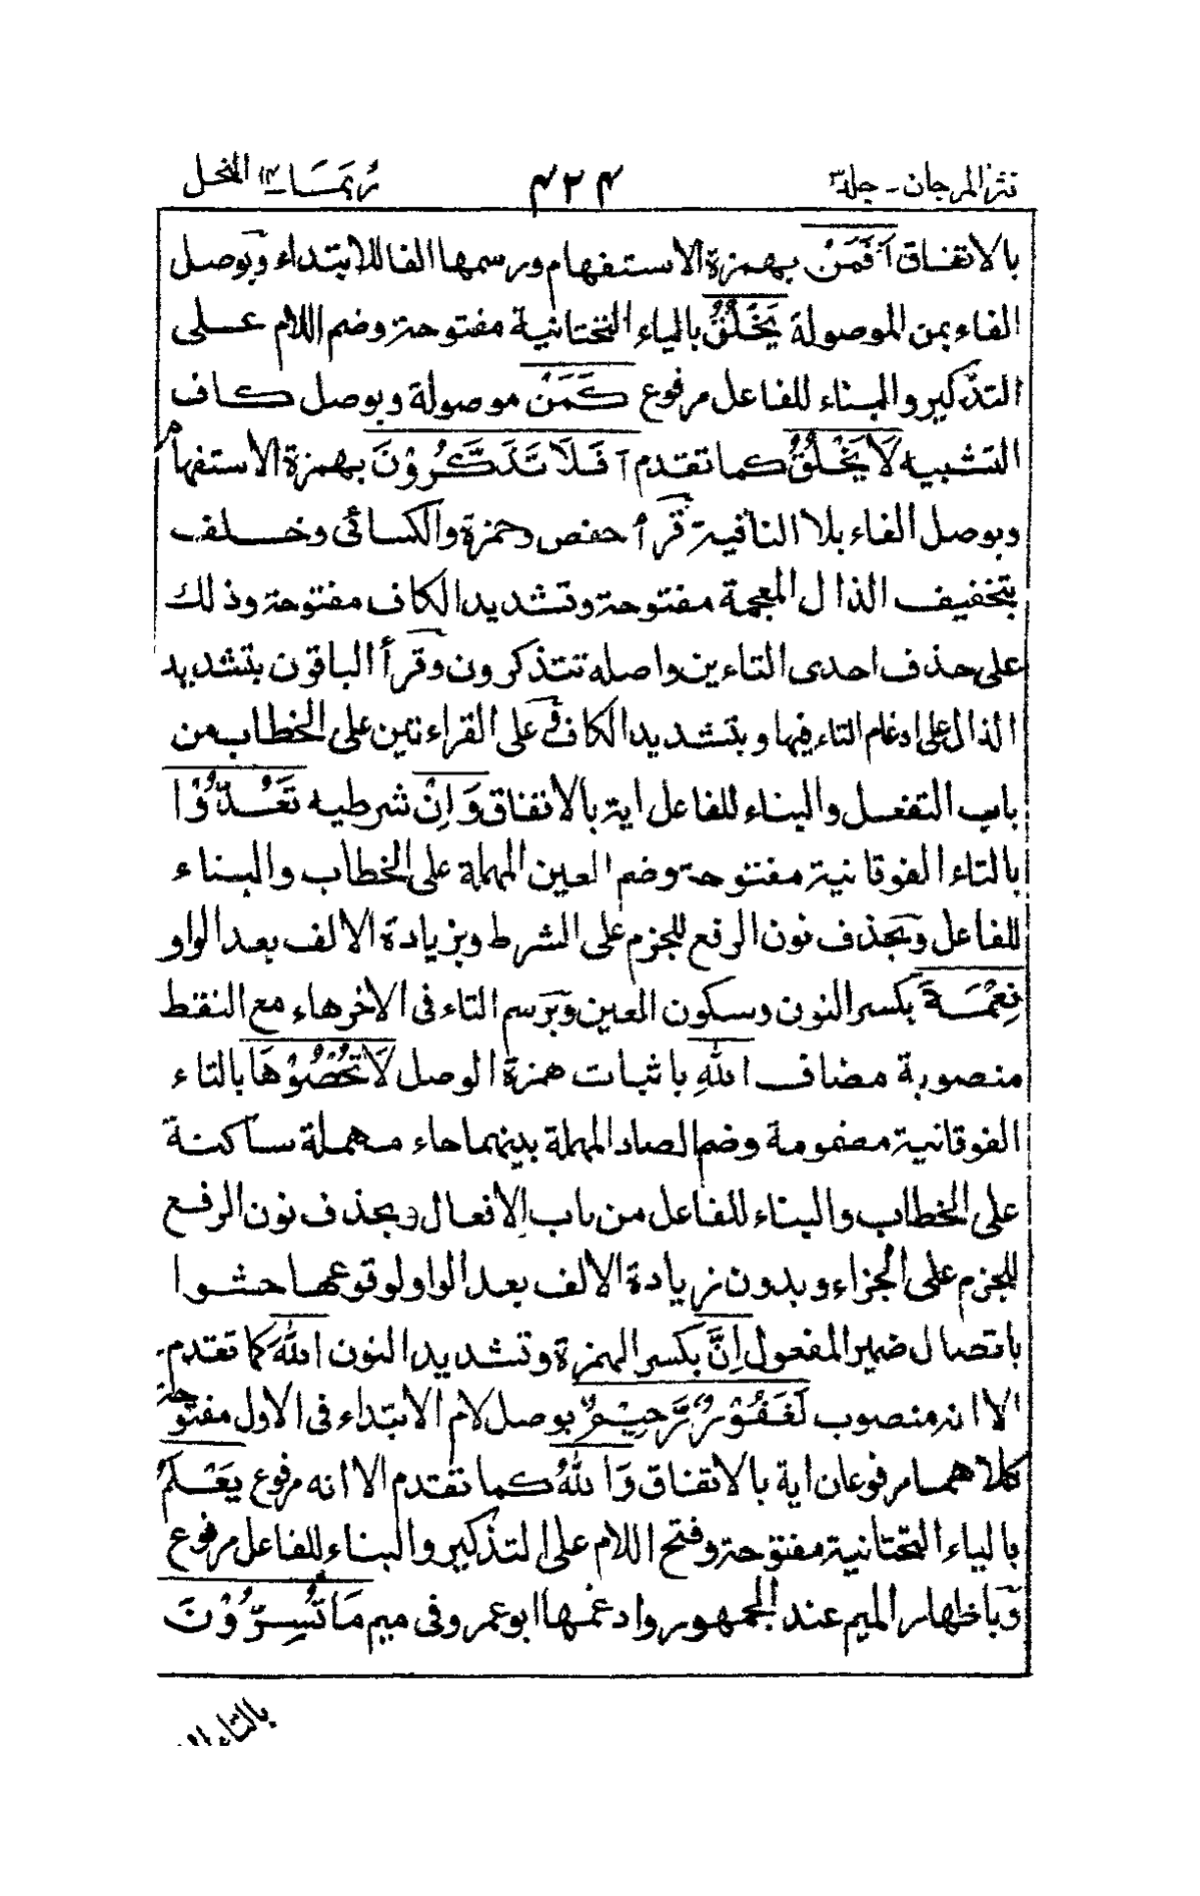 نثر المرجان - جلد ۳ ۴۲۴ ربما ۱۴ النحل
بالاتفاق اَفَمَنْ بهمزة الاستفهام ورسمها الفا للابتداء وبوصل
الفاء بمن الموصولة يَخْلُقُ بالياء التحتانية مفتوحة وضم اللام على
التذكير والبناء للفاعل مرفوع كَمَنْ موصولة وبوصل كاف
التشبيه لَا يَخْلُقُ كما تقدم اَفَلَا تَذَكَّرُوْنَ بهمزة الاستفهام
وبوصل الفاء بلا النافية قرأ حفص وحمزة والكسائى وخلف
بتخفيف الذال المعجمة مفتوحة وتشديد الكاف مفتوحة وذلك
على حذف احدى التاءين واصله تتذكرون وقرأ الباقون بتشديد
الذال على ادغام التاء فيها وبتشديد الكاف وعلى القراءتين على الخطاب من
باب التفعل والبناء للفاعل اية بالاتفاق وَاِنْ شرطيه تَعُدُّوْا
بالتاء الفوقانية مفتوحة وضم العين المهملة على الخطاب والبناء
للفاعل وبحذف نون الرفع للجزم على الشرط وبزيادة الالف بعد الواو
نِعْمَةَ بكسر النون وسكون العين وبرسم التاء فى الاخر هاء مع النقط
منصوبة مضاف اللهِ باثبات همزة الوصل لَا تُحْصُوْهَا بالتاء
الفوقانية مضمومة وضم الصاد المهملة بينهما حاء مهملة ساكنة
على الخطاب والبناء للفاعل من باب الافعال وبحذف نون الرفع
للجزم على الجزاء وبدون زيادة الالف بعد الواو لوقوعها حشوا
باتصال ضمير المفعول اِنَّ بكسر الهمزة وتشديد النون اللهَ كما تقدم
الا انه منصوب لَغَفُوْرٌ رَّحِيْمٌ بوصل لام الابتداء فى الاول مفتوحة
كلاهما مرفوعان اية بالاتفاق وَاللهُ كما تقدم الا انه مرفوع يَعْلَمُ
بالياء التحتانية مفتوحة وفتح اللام على التذكير والبناء للفاعل مرفوع
وباظهار الميم عند الجمهور وادغمها ابو عمرو فى ميم مَا تُسِرُّوْنَ
بالتاء